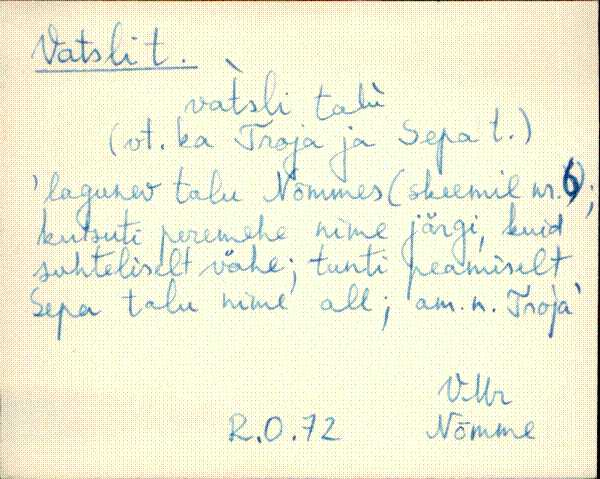 Vatsli t.
vàtsli talù
(vt. ka Troja ja Sepa t.)
'lagunev talu Nõmmes (skeemil nr. 6);
kutsuti peremehe nime järgi, kuid
suhteliselt vähe; tunti peamiselt
Sepa talu nime all; am. n. Troja'
VMr
R.O.72 Nõmme